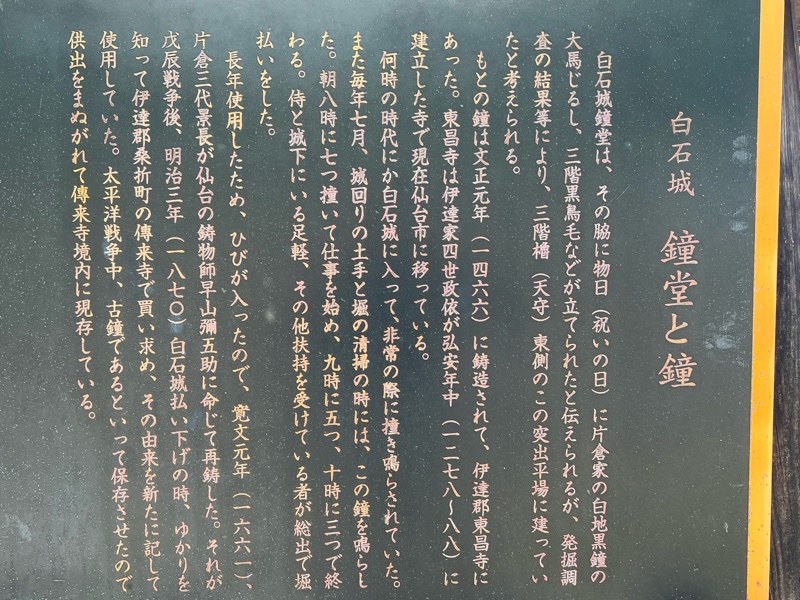 白石城 鐘堂と鐘
白石城鐘堂は、その脇に物日（祝いの日）に片倉家の白地黒鐘の
大馬じるし、三階黒鳥毛などが立てられたと伝えられるが、発掘調
査の結果等により、三階櫓（天守）東側のこの突出平場に建ってい
たと考えられる。
もとの鐘は文正元年（一四六六）に鋳造されて、伊達郡東昌寺に
あった。東昌寺は伊達家四世政依が弘安年中（一二七八〜八八）に
建立した寺で現在仙台市に移っている。
何時の時代にか白石城に入って、非常の際に撞き鳴らされていた。
また毎年七月、城回りの土手と堀の清掃の時には、この鐘を鳴らし
た。朝八時に七つ撞いて仕事を始め、九時に五つ、十時に三つで終
わる。侍と城下にいる足軽、その他扶持を受けている者が総出で堀
払いをした。
長年使用したため、ひびが入ったので、寛文元年（一六六一）、
片倉三代景長が仙台の鋳物師早山彌五助に命じて再鋳した。それが
戊辰戦争後、明治三年（一八七〇）白石城払い下げの時、ゆかりを
知って伊達郡桑折町の傳来寺で買い求め、その由来を新たに記して
使用していた。太平洋戦争中、古鐘であるといって保存させたので
供出をまぬがれて傳来寺境内に現存している。